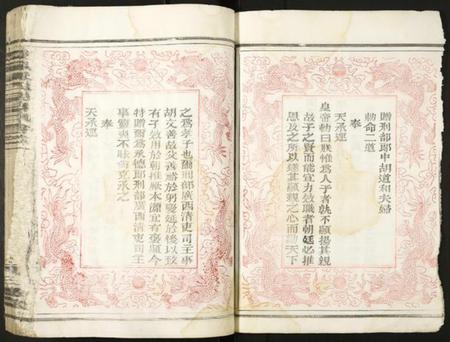 贈刑部郎中胡道和夫婦
勅命二道
奉
天承運
皇帝勅曰朕惟爲人子者孰不顯揚其親
故子之賢而能宣力效職者朝廷必推
恩及之所以遂其顯親之心而勸天下
之爲孝子也爾刑部廣西清吏司主事
胡文善故父善積於躬慶延於後以致
有子效用於朝推厥本源宜有褒顯今
特贈爾爲承德郎刑部廣西清吏司主
事靈爽不昧尚克承之
奉
天承運